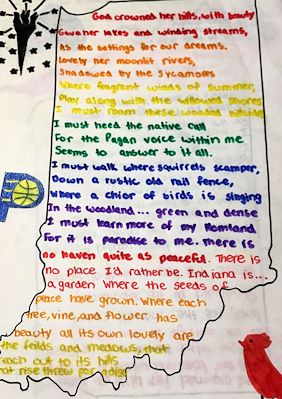 God crowned her hills, with beauty
Gave her lakes and winding streams,
As the settings for our dreams.
Lovely her moonlit rivers,
Shadowed by the Sycamores
Where fragrant winds of summer,
Play along with the willowed shores
I must roam these wooded
I must heed the native call
For the Pagan voice within me
Seems to answer to it all.
I must walk where squirrels scamper,
Down a rustic old rail fence,
Where a chior of birds is singing
In the woodland... green and dense
I must learn more of my Homland
For it is paradise to me. There is
no haven quite as peaceful. There is
no place I'd rather be. Indiana is...
a garden Where the seeds of
peace have grown. Where each
tree, vine, and flower has
beauty all its own lovely are
the feilds and meadows, that
reach out to its hills
that rise threw
P